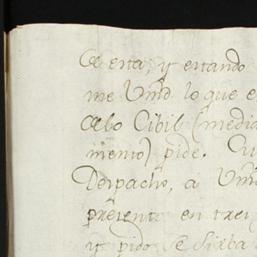 de esta, y estando
me Vmd lo que e
albo Cibil (media
miento) pide. Su
Despacho, a Vm
presente en trei
y pido se sixba